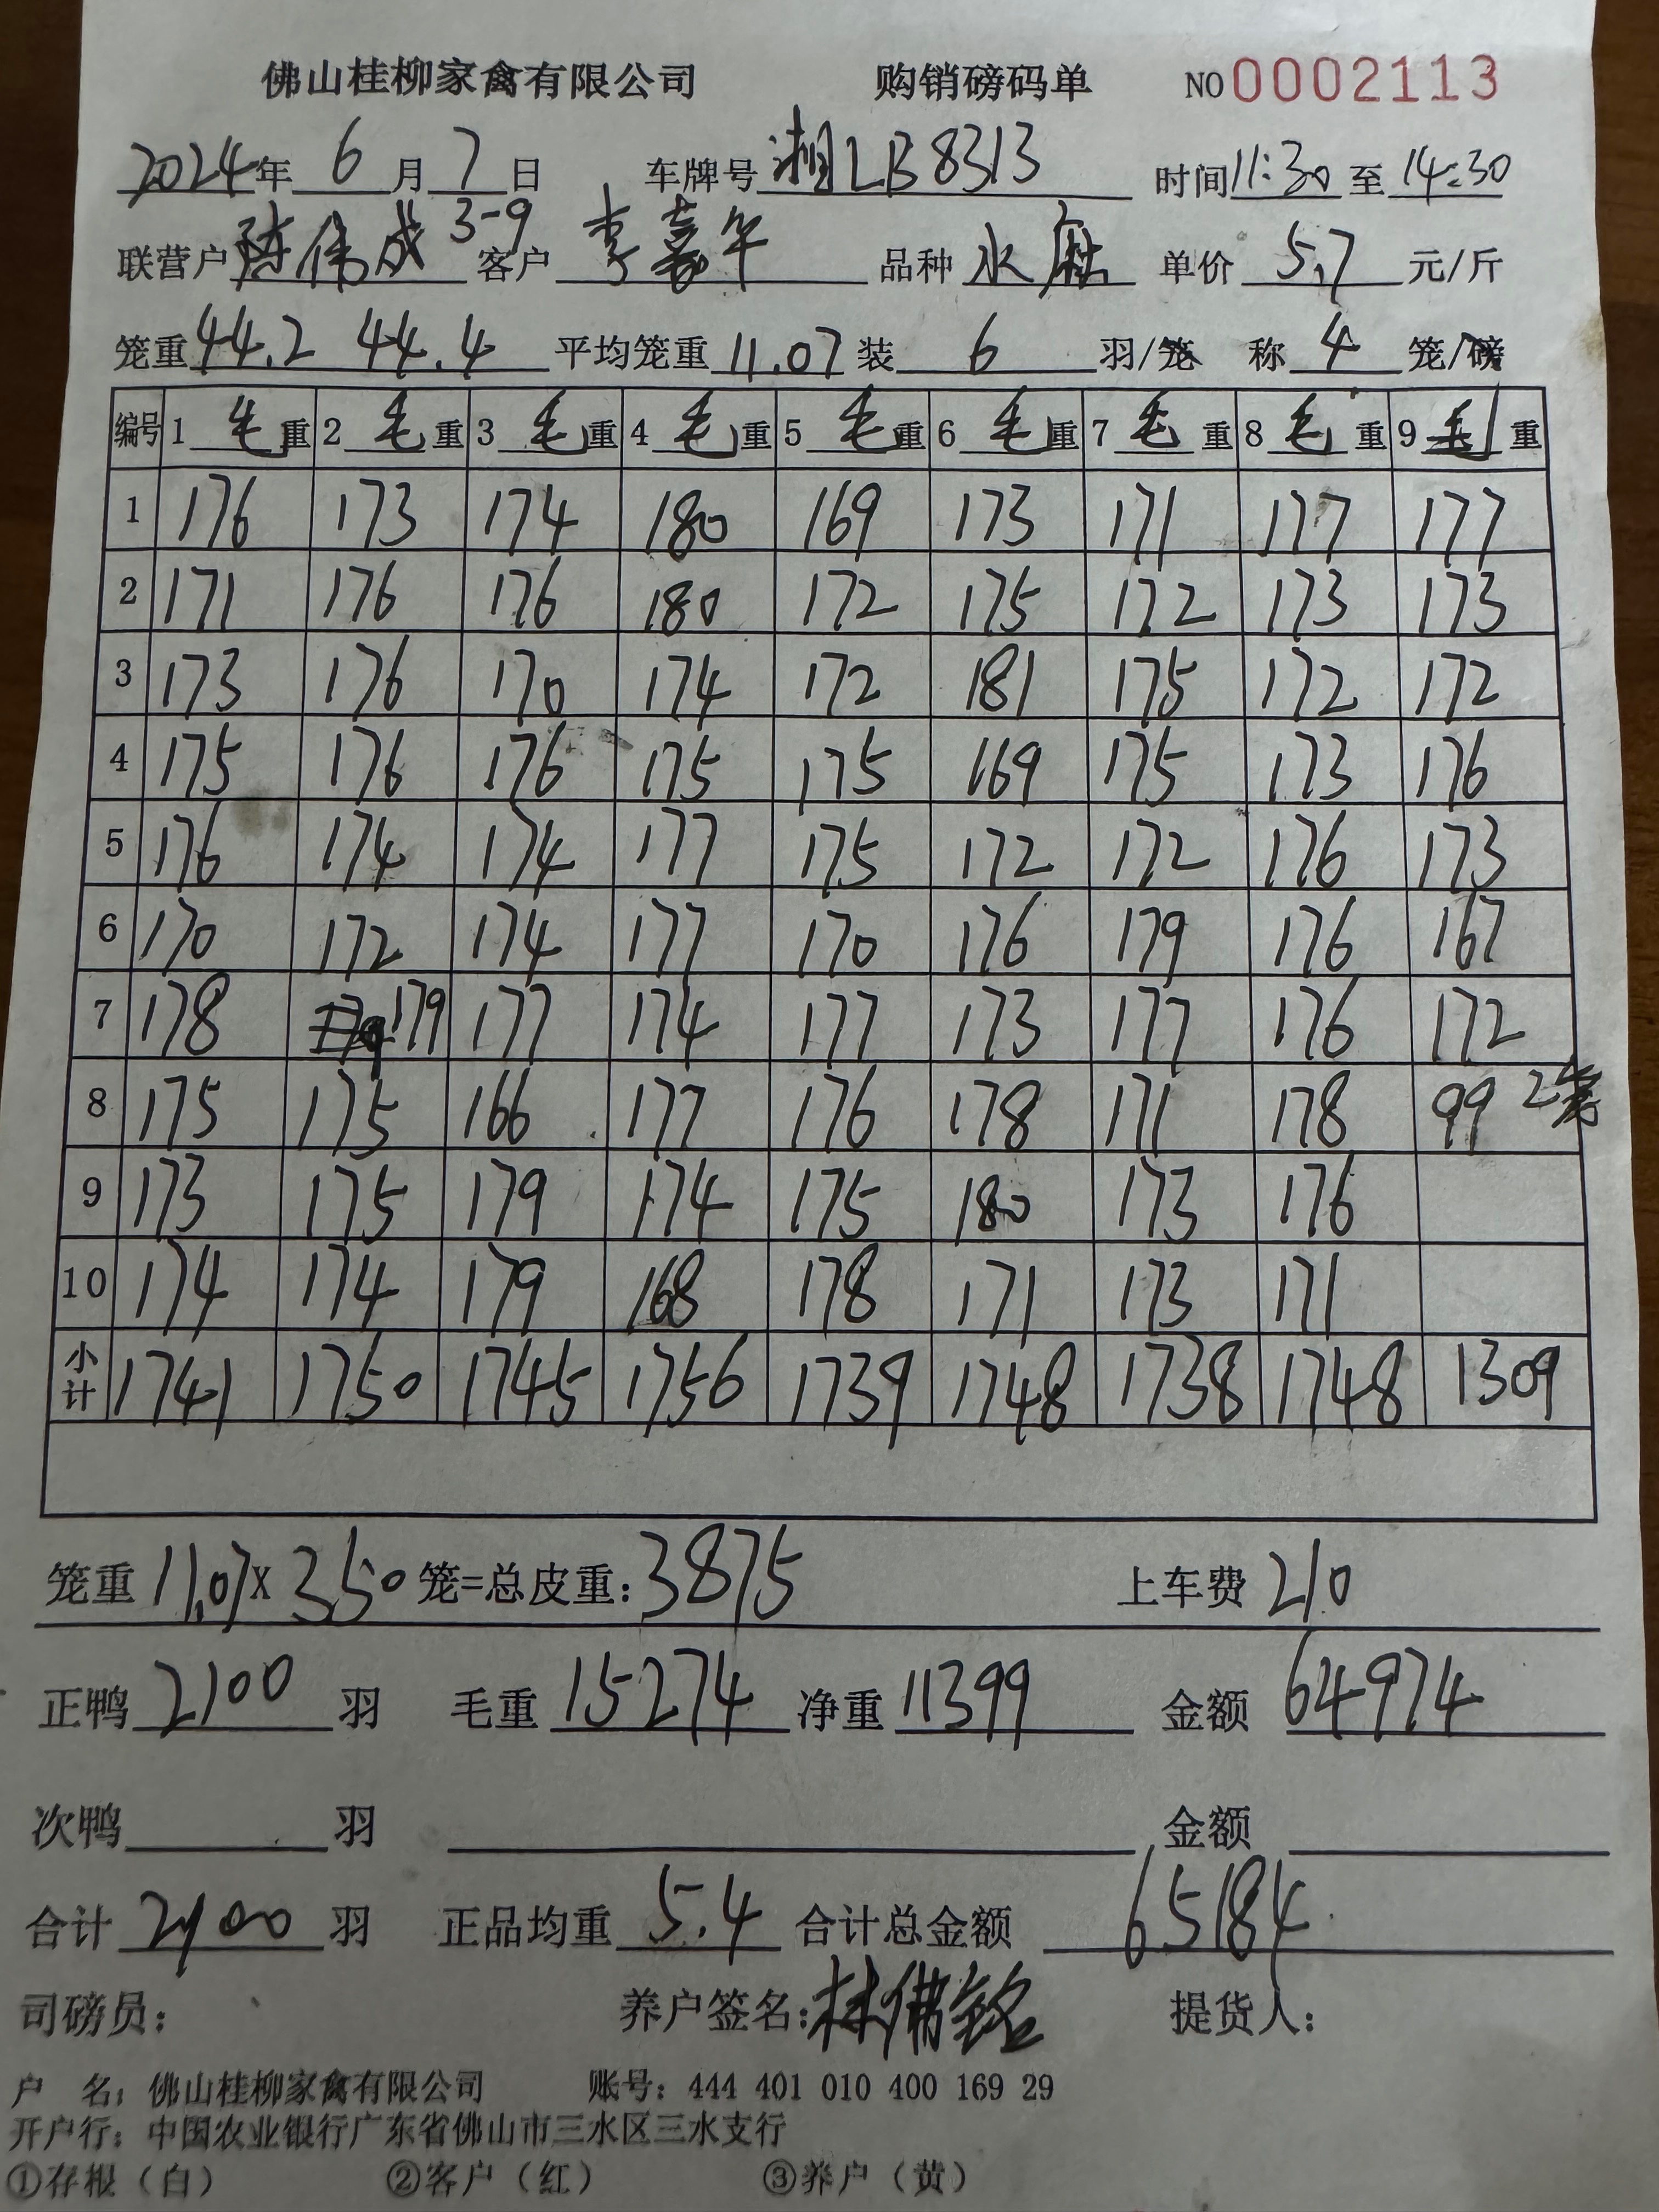 佛山桂柳家禽有限公司 购销磅码单 NO 0002113
2024年 6 月 7 日 车牌号 湘LB8313 时间 11:30 至 14:30
联营户 陈伟成 3-9 客户 李嘉 品种 水 单价 5.7 元/斤
笼重 44.2 44.4 平均笼重 11.07 装 6 羽/笼 称 4 笼/磅
编号 1 毛 重 2 毛 重 3 毛 重 4 毛 重 5 毛 重 6 毛 重 7 毛 重 8 毛 重 9 毛 重
1 176 173 174 180 169 173 171 177 177
2 171 176 176 180 172 175 172 173 173
3 173 176 170 174 172 181 175 172 172
4 175 176 176 175 175 169 175 173 176
5 176 174 174 177 175 172 172 176 173
6 170 172 174 177 170 176 179 176 167
7 178 179 177 174 177 173 177 176 172
8 175 175 166 177 176 178 171 178 99 2笼
9 173 175 179 174 175 180 173 176
10 174 174 179 168 178 171 173 171
小计 1741 1750 1745 1756 1739 1748 1738 1748 1309
笼重 11.07 X 350 笼=总皮重: 3875 上车费 210
正鸭 2100 羽 毛重 15274 净重 11399 金额 64974
次鸭 羽 金额
合计 2100 羽 正品均重 5.4 合计总金额 65184
司磅员: 养户签名: 林佛铭 提货人:
户 名: 佛山桂柳家禽有限公司 账号: 444 401 010 400 169 29
开户行: 中国农业银行广东省佛山市三水区三水支行
①存根（白） ②客户（红） ③养户（黄）